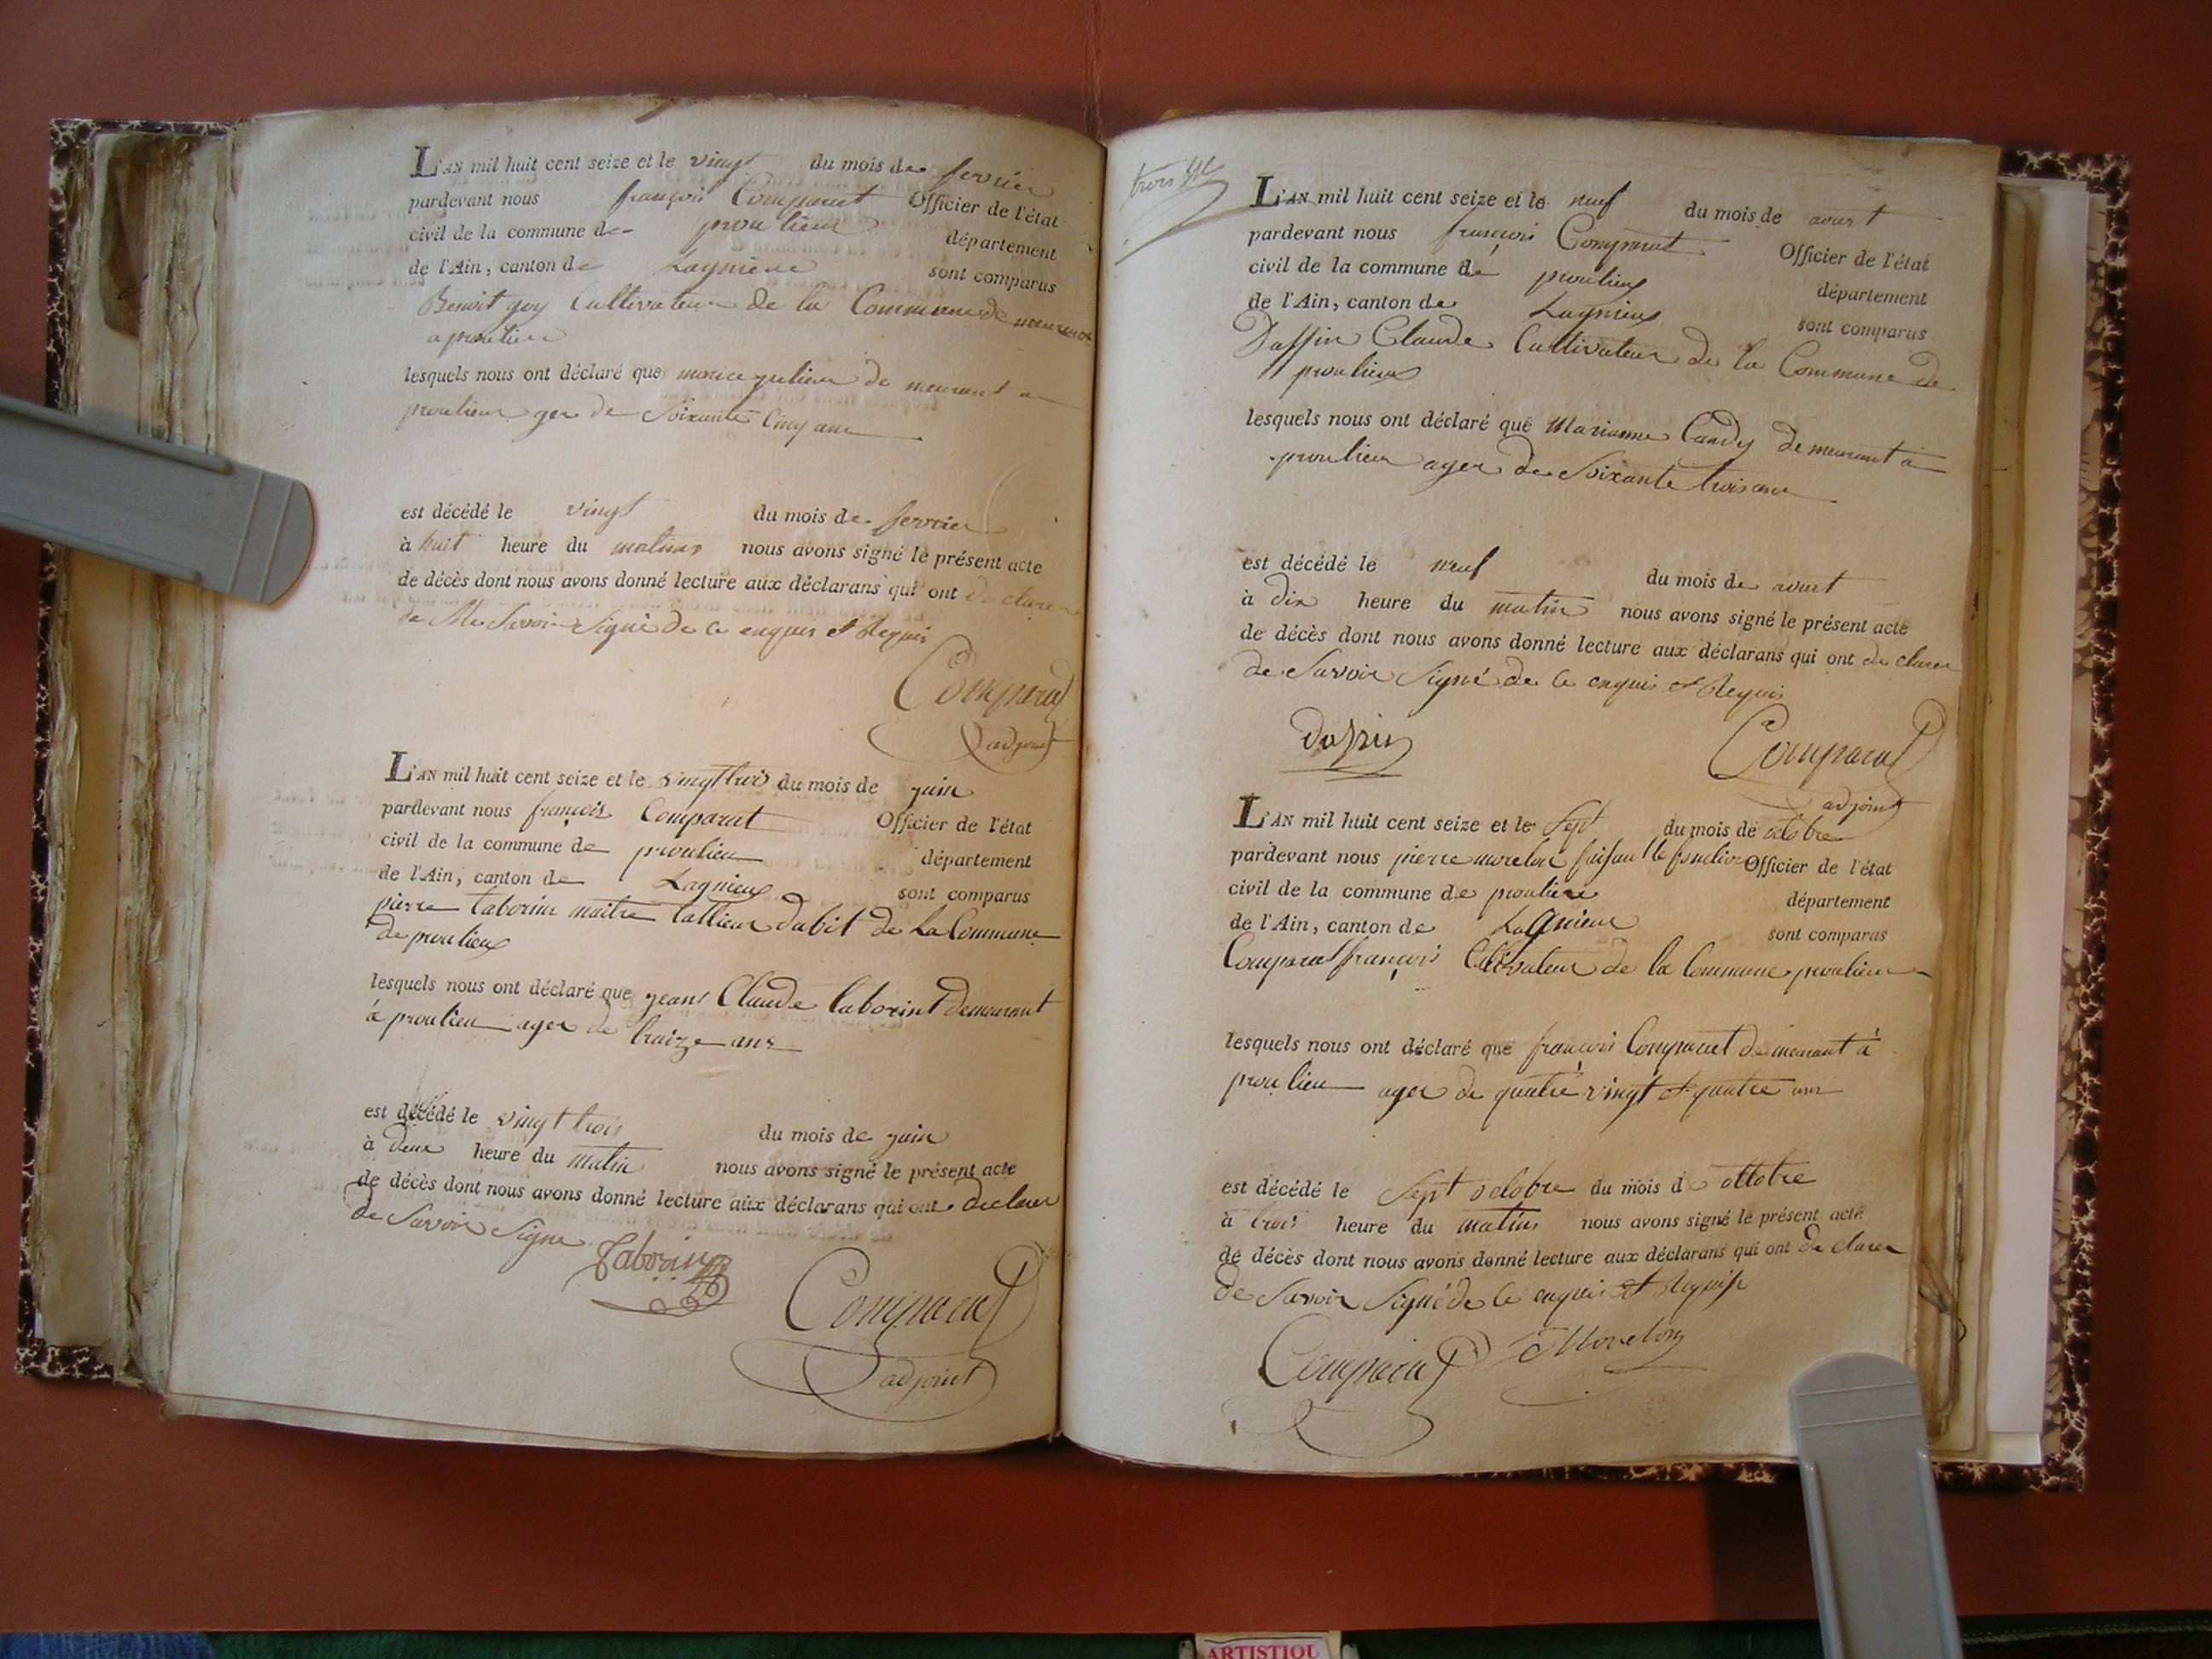 L'AN mil huit cent seize et le vingt du mois de fevrier
pardevant nous françois Comparat Officier de l'état
civil de la commune de proulieu département
de l'Ain, canton de Lagnieue sont comparus
Benoit goy Cultivateur de la Commune demeurant
a proulieu
lesquels nous ont déclaré que de meurant a
proulieu ager de Soixante Cinq ans
est décédé le vingt du mois de fevrier
à huit heure du matins nous avons signé le présent acte
de décès dont nous avons donné lecture aux déclarans qui ont de clarer
de Ne Savoir Signé de Ce enquis et Requis
Comparat
adjoint
L'AN mil huit cent seize et le vingt trois du mois de juin
pardevant nous françois Comparat Officier de l'état
civil de la commune de proulieu département
de l'Ain, canton de Lagnieux sont comparus
pierre taborin maitre tallieur dabit de La Commune
de proulieux
lesquels nous ont déclaré que jean Claude taborint demeurant
à proulieu ager de traize ans
est décédé le vingt trois du mois de juin
à deux heure du matin nous avons signé le présent acte
de décès dont nous avons donné lecture aux déclarans qui ont declarer
de Savoir Signe
Taborin
Comparat
adjoint
trois
L'AN mil huit cent seize et le neuf du mois de avust
pardevant nous françois Comparat Officier de l'état
civil de la commune de proulieux département
de l'Ain, canton de Lagnieux sont comparus
Daffin Claude Cultivateur de la Commune de
proulieux
lesquels nous ont déclaré que Marianne Candy demeurant à
proulieu ager de Soixante trois ans
est décédé le neuf du mois de avust
à dix heure du matin nous avons signé le présent acte
de décès dont nous avons donné lecture aux déclarans qui ont de clarer
de Savoir Signé de Ce enquis et Requis
Comparat
adjoint
L'AN mil huit cent seize et le Sept du mois de octobre
pardevant nous pierre morelon faisant le fonction Officier de l'état
civil de la commune de proulieu département
de l'Ain, canton de Lagnieu sont comparus
Comparat françois Cultivateur de la Commune proulieu
lesquels nous ont déclaré que françois Comparat demeurant à
proulieu ager de quatre vingt et quatre ans
est décédé le Sept octobre du mois d ottobre
à trois heure du matins nous avons signé le présent acte
de décès dont nous avons donné lecture aux déclarans qui ont de clarer
de Savoir Signé de Ce enquis et Requis
Comparat Morelon
ARTISTIQU